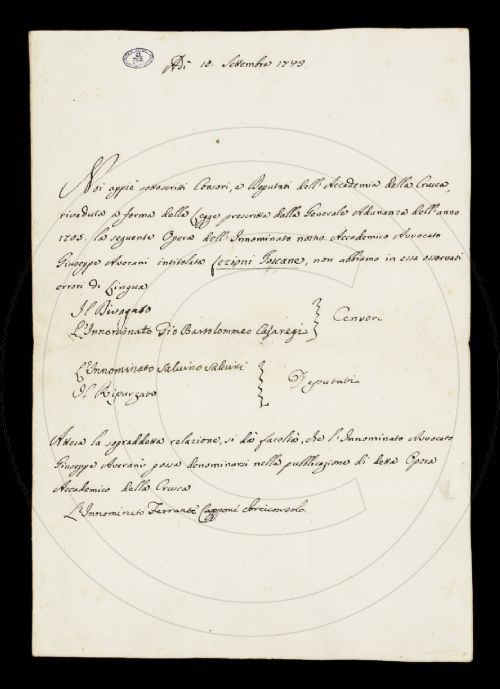 Adì 18. Settembre 1743
Noi appiè sottoscritti Censori, e Deputati dell'Accademia della Crusca,
riveduta a forma della Legge prescritta dalla Generale Adunanza dell'anno
1705. la seguente Opera dell'Innominato nostro Accademico Avvocato
Giuseppe Averani intitolata Lezioni Toscane, non abbiamo in essa osservati
errori di Lingua
Il
L'Innominato Gio Bartolommeo Casaregi
Censori
L'Innominato Salvino Salvini
Il Ripurgato
Deputati
Attesa la sopraddetta relazione, si dà facoltà, che l'Innominato Avvocato
Giuseppe Averani possa denominarsi nella pubblicazione di detta Opera
Accademico della Crusca
L'Innominato Ferrante Capponi Arciconsolo